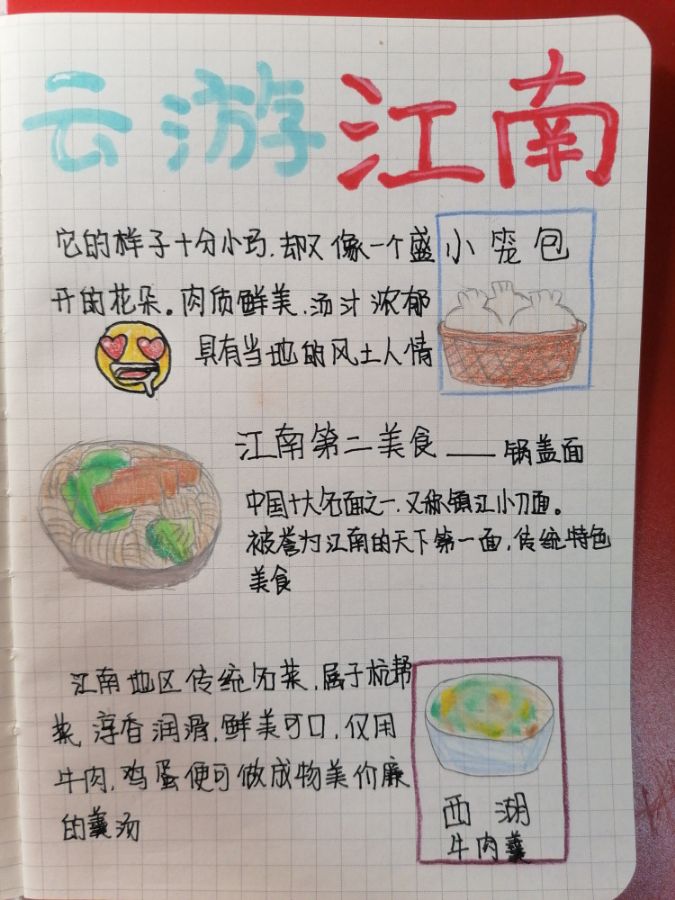 云游江南
它的样子十分小巧,却又像一个盛
开的花朵。肉质鲜美,汤汁浓郁
具有当地的风土人情
小笼包
江南第二美食——锅盖面
中国十大名面之一,又称镇江小刀面。
被誉为江南的天下第一面,传统特色
美食
江南地区传统名菜,属于杭帮
菜,淳香润滑,鲜美可口,仅用
牛肉,鸡蛋便可做成物美价廉
的羹汤
西湖
牛肉羹